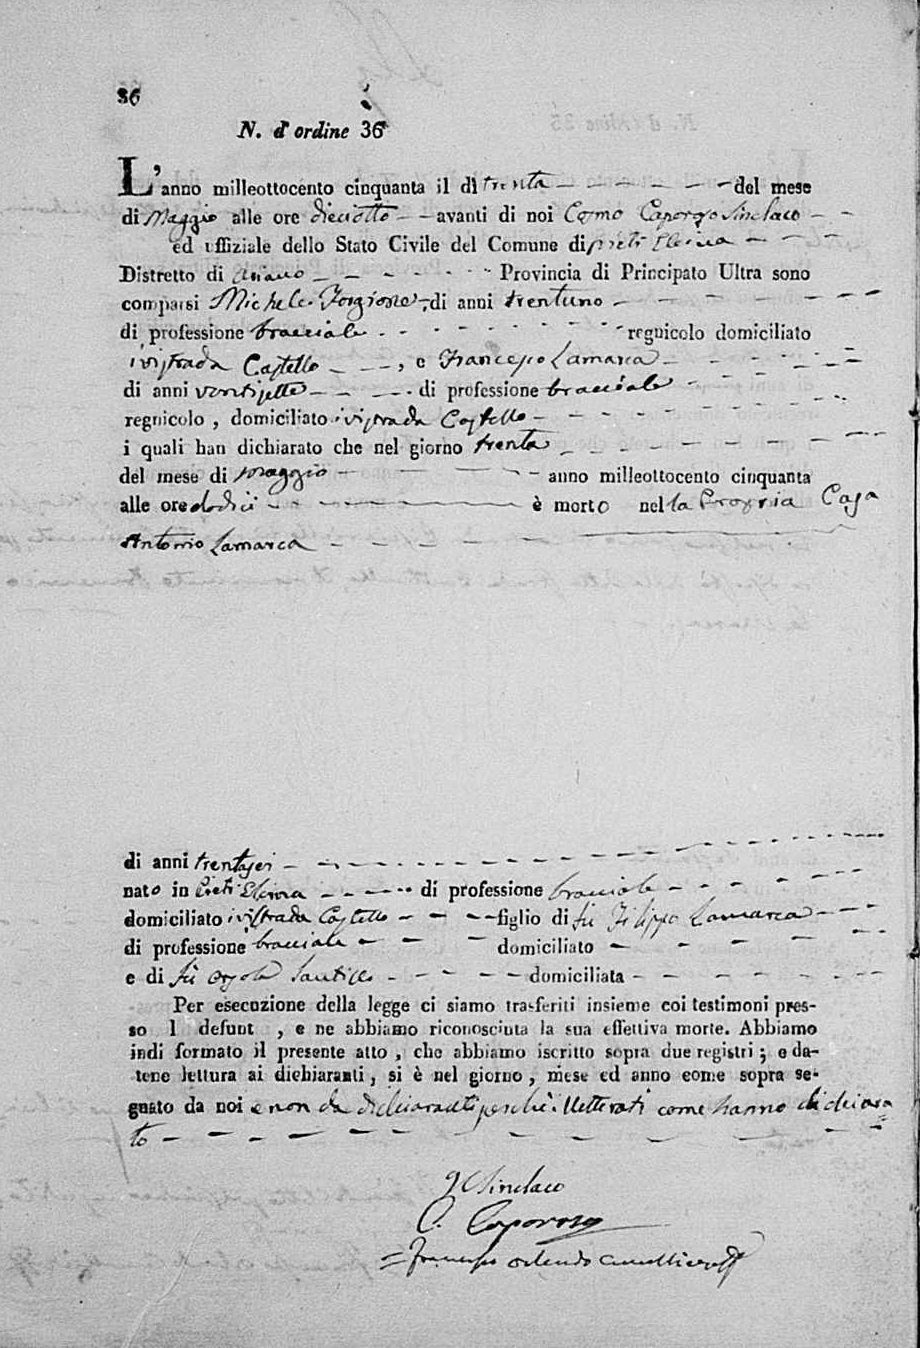 36
N. d' ordine 36
L'anno milleottocento cinquanta il dì trenta del mese
di Maggio alle ore dieciotto avanti di noi Cosmo Caporaso Sindaco
ed uffiziale dello Stato Civile del Comune di Pietr Elcina
Distretto di Ariano Provincia di Principato Ultra sono
comparsi Michele Forgione di anni trentuno
di professione bracciale regnicolo domiciliato
ivi strada Castello, e Francesco Lamarca
di anni ventisette di professione bracciale
regnicolo, domiciliato ivi strada Castello
i quali han dichiarato che nel giorno trenta
del mese di maggio anno milleottocento cinquanta
alle ore dodici è morto nella Propria Casa
Antonio Lamarca
di anni trentasei
nato in Pietr Elcina di professione bracciale
domiciliato ivi strada Castello figlio di fù Filippo Lamarca
di professione bracciale domiciliato
e di fù Orsola Santillo domiciliata
Per esecuzione della legge ci siamo trasferiti insieme coi testimoni pres-
so l defunt , e ne abbiamo riconosciuta la sua effettiva morte. Abbiamo
indi formato il presente atto, che abbiamo iscritto sopra due registri; e da-
tene lettura ai dichiaranti, si è nel giorno, mese ed anno come sopra se-
gnato da noi e non da dichiaranti perchè illetterati come hanno dichiara
to
Il Sindaco
C. Caporaso
Francesco Orlando